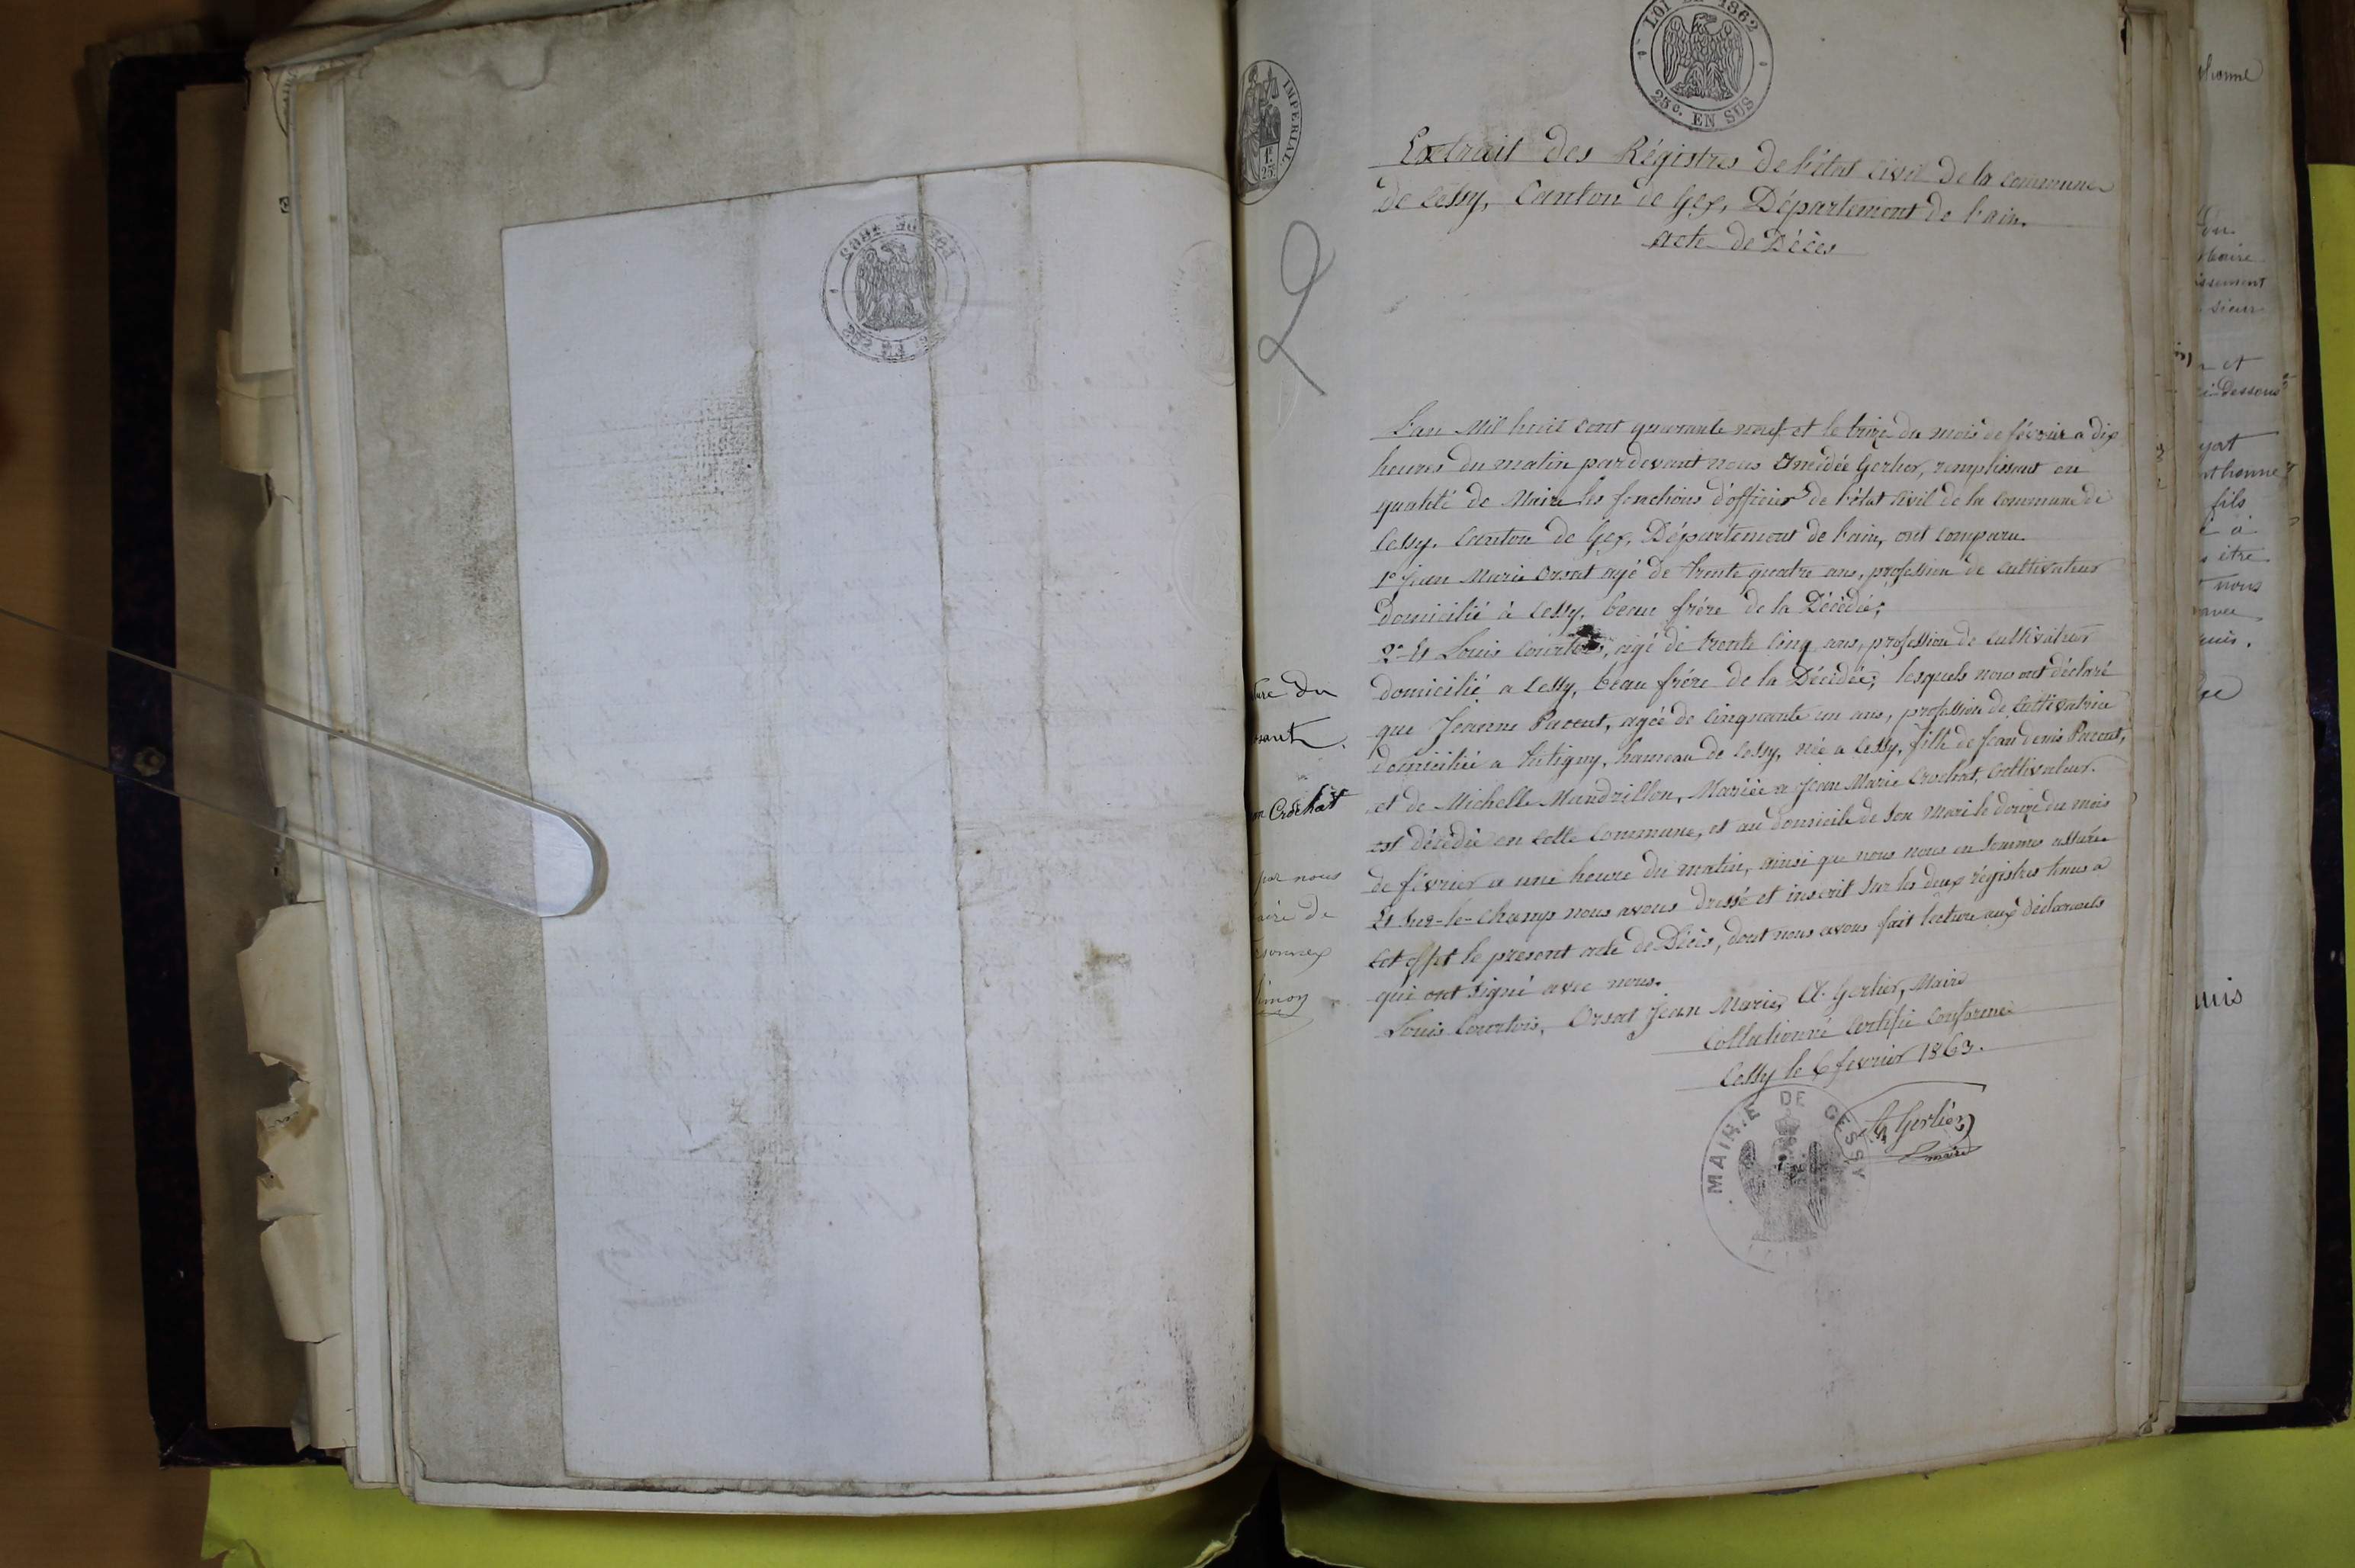 LOI DE 1862
25c. EN SUS
IMPERIAL
1f.
25c
Extrait des Régistres de l'état civil de la commune
de Cessy, Canton de Gex, Département de l'ain.
Acte de Décès
2
L'an Mil huit cent quarante neuf et le treize du mois de février a dix
heures du matin pardevant nous Amédée Gerlier, remplissant en
qualité de Maire les fonctions d'officier de l'état civil de la commune de
Cessy, Canton de Gex, Département de l'ain, ont comparu.
1° Jean Marie Orsat agé de trente quatre ans, profession de cultivateur
domicilié à Cessy, beau frére de la Décédée;
2° Et Louis Courtois, agé de trente cinq ans, profession de cultivateur
domicilié a Cessy, beau frére de la Décédée; lesquels nous ont déclaré
que Jeanne Parent, agée de cinquante un ans, profession de Cultivatrice
domiciliée a hameau de Cessy, née a Cessy, fille de Jean denis Parent,
et de Michelle Mandrillon, Mariée a Jean Marie Crochat, Cultivateur.
est décédée en cette Commune, et au domicile de son Mari le douze du mois
de février a une heure du matin, ainsi que nous nous en sommes assurée
Et sur-le-champ nous avons dressé et inscrit sur les deux régistres tenus a
cet effet le present acte de Décès, dont nous avons fait lecture aux déclarants
qui ont signé avec nous.
Louis Courtois, Orsat Jean Marie, A. Gerlier, Maire
Collationné Certifié Conforme
Cessy le 6 fevrier 1863.
A Gerlier
maire
MAIRIE DE CESSY
AIN
du
Crochat
par nous
de
et
fils
à
être
nous